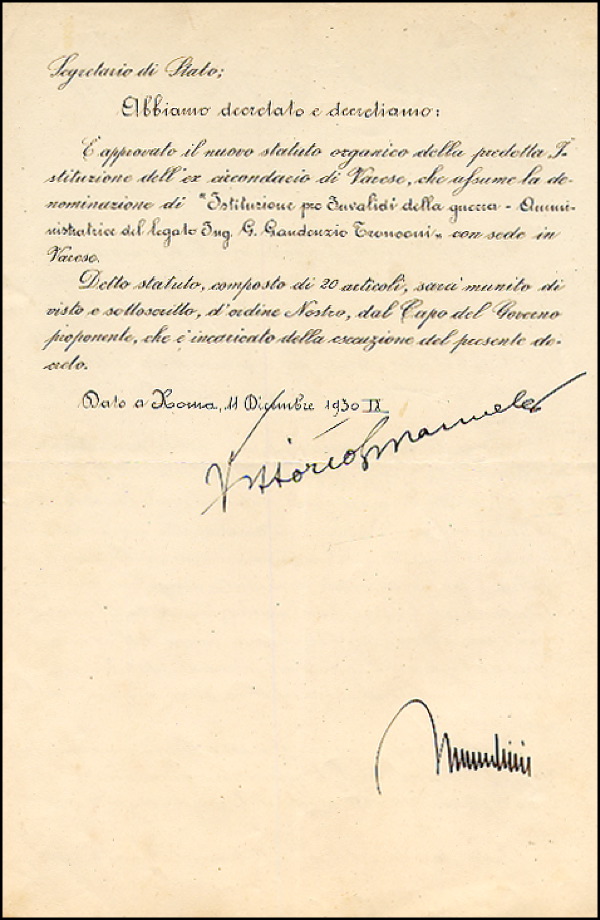 Segretario di Stato;
Abbiamo decretato e decretiamo:
È approvato il nuovo statuto organico della predetta I-
stituzione dell'ex circondario di Varese, che assume la de-
nominazione di "Istituzione pro Invalidi della guerra - Ammi-
nistratrice del legato Ing. G. Gaudenzio Tronconi" con sede in
Varese.
Detto statuto, composto di 20 articoli, sarà munito di
visto e sottoscritto, d'ordine Nostro, dal Capo del Governo
proponente, che è incaricato della esecuzione del presente de-
creto.
Dato a Roma, 11 Dicembre 1930 IX
Vittorio Emanuele
Mussolini